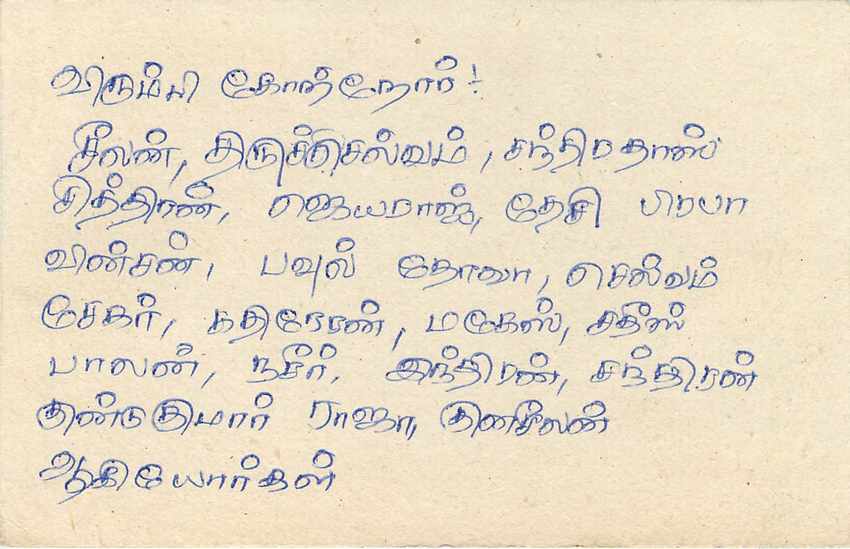 விரும்பி கேட்போர்!
சீலன், திருச்செல்வம், சந்திரதாஸ்
சித்திரன், ஜெயராஜ், தேசி பிரபா
வின்சன், பவுல் தோவா, செல்வம்
சேகர், கதிரேசன், மகேஸ், சதீஸ்
பாலன், நசீர், இந்திரன், சந்திரன்
குண்டுகுமார் ராஜா, குணசீலன்
ஆகியோர்கள்